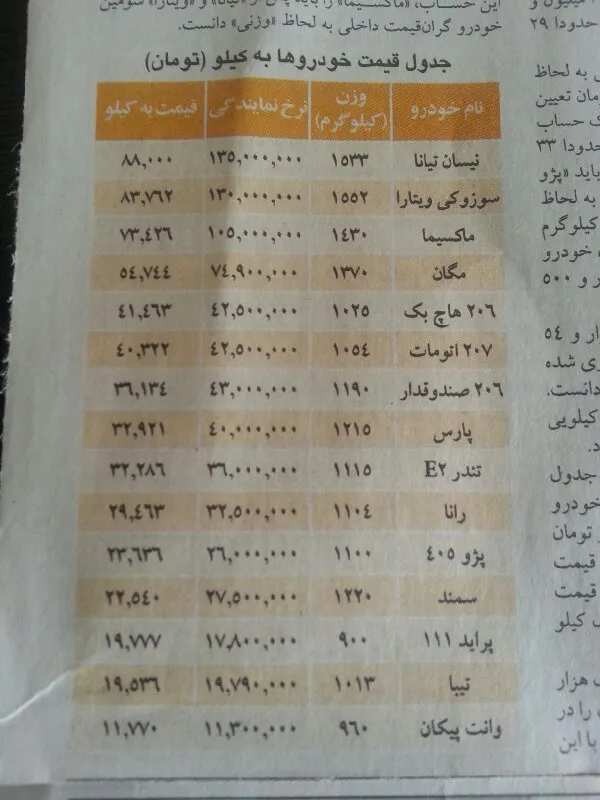 این حساب، «ماکسیما» را باید پس از «تیانا» و «ویتارا» سومین
خودرو گران‌قیمت داخلی به لحاظ «وزنی» دانست.
جدول قیمت خودروها به کیلو (تومان)
نام خودرو وزن (کیلوگرم) نرخ نمایندگی قیمت به کیلو
نیسان تیانا ۱۵۳۳ ۱۳۵,۰۰۰,۰۰۰ ۸۸,۰۰۰
سوزوکی ویتارا ۱۵۵۲ ۱۳۰,۰۰۰,۰۰۰ ۸۳,۷۶۲
ماکسیما ۱۴۳۰ ۱۰۵,۰۰۰,۰۰۰ ۷۳,۴۲۶
مگان ۱۳۷۰ ۷۴,۹۰۰,۰۰۰ ۵۴,۷۴۴
۲۰۶ هاچ بک ۱۰۲۵ ۴۲,۵۰۰,۰۰۰ ۴۱,۴۶۳
۲۰۷ اتومات ۱۰۵۴ ۴۲,۵۰۰,۰۰۰ ۴۰,۳۲۲
۲۰۶ صندوقدار ۱۱۹۰ ۴۳,۰۰۰,۰۰۰ ۳۶,۱۳۴
پارس ۱۲۱۵ ۴۰,۰۰۰,۰۰۰ ۳۲,۹۲۱
تندر E۲ ۱۱۱۵ ۳۶,۰۰۰,۰۰۰ ۳۲,۲۸۶
رانا ۱۱۰۴ ۳۲,۵۰۰,۰۰۰ ۲۹,۴۶۳
پژو ۴۰۵ ۱۱۰۰ ۲۶,۰۰۰,۰۰۰ ۲۳,۶۳۶
سمند ۱۲۲۰ ۲۷,۵۰۰,۰۰۰ ۲۲,۵۴۰
پراید ۱۱۱ ۹۰۰ ۱۷,۸۰۰,۰۰۰ ۱۹,۷۷۷
تیبا ۱۰۱۳ ۱۹,۷۹۰,۰۰۰ ۱۹,۵۳۶
وانت پیکان ۹۶۰ ۱۱,۳۰۰,۰۰۰ ۱۱,۷۷۰
حدودا ۲۹
به لحاظ
تعیین
حساب
حدودا ۳۳
باید «پژو
به لحاظ
کیلوگرم
خودرو
و ۵۰۰
و ۵۴
شده
دانست.
کیلویی
جدول
خودرو
تومان
قیمت
قیمت
کیلو
هزار
را در
با این